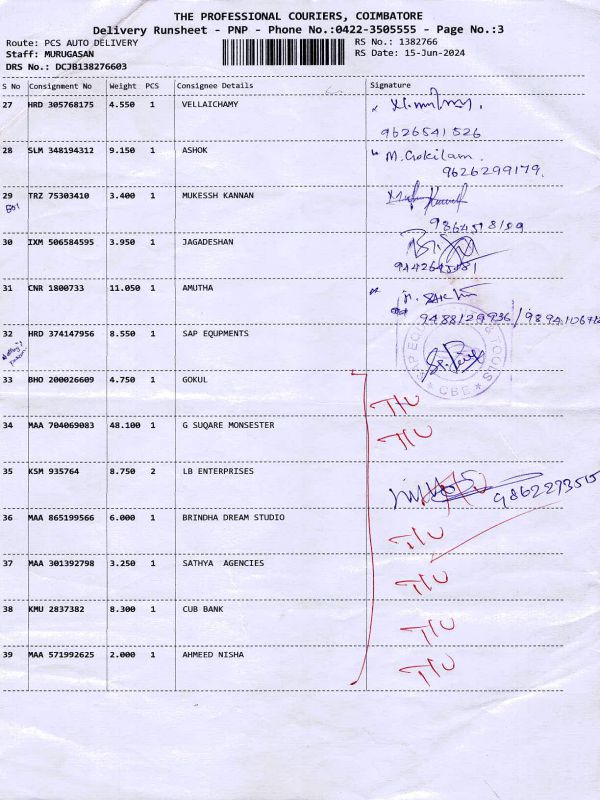 THE PROFESSIONAL COURIERS, COIMBATORE
Delivery Runsheet - PNP - Phone No.:0422-3505555 - Page No.:3
Route: PCS AUTO DELIVERY RS No.: 1382766
Staff: MURUGASAN RS Date: 15-Jun-2024
DRS No.: DCJB138276603
S No Consignment No Weight PCS Consignee Details Signature
27 HRD 305768175 4.550 1 VELLAICHAMY
9626541526
28 SLM 348194312 9.150 1 ASHOK M. Gokilam.
9626299179.
29 TRZ 75303410 3.400 1 MUKESSH KANNAN
30 IXM 506584595 3.950 1 JAGADESHAN
31 CNR 1800733 11.050 1 AMUTHA
9488129936 /
32 HRD 374147956 8.550 1 SAP EQUPMENTS
SAP & TOOLS
* CBE *
33 BHO 200026609 4.750 1 GOKUL
T/U
34 MAA 704069083 48.100 1 G SUQARE MONSESTER
T/U
35 KSM 935764 8.750 2 LB ENTERPRISES
36 MAA 865199566 6.000 1 BRINDHA DREAM STUDIO
T/U
37 MAA 301392798 3.250 1 SATHYA AGENCIES
T/U
38 KMU 2837382 8.300 1 CUB BANK
T/U
39 MAA 571992625 2.000 1 AHMEED NISHA
T/U